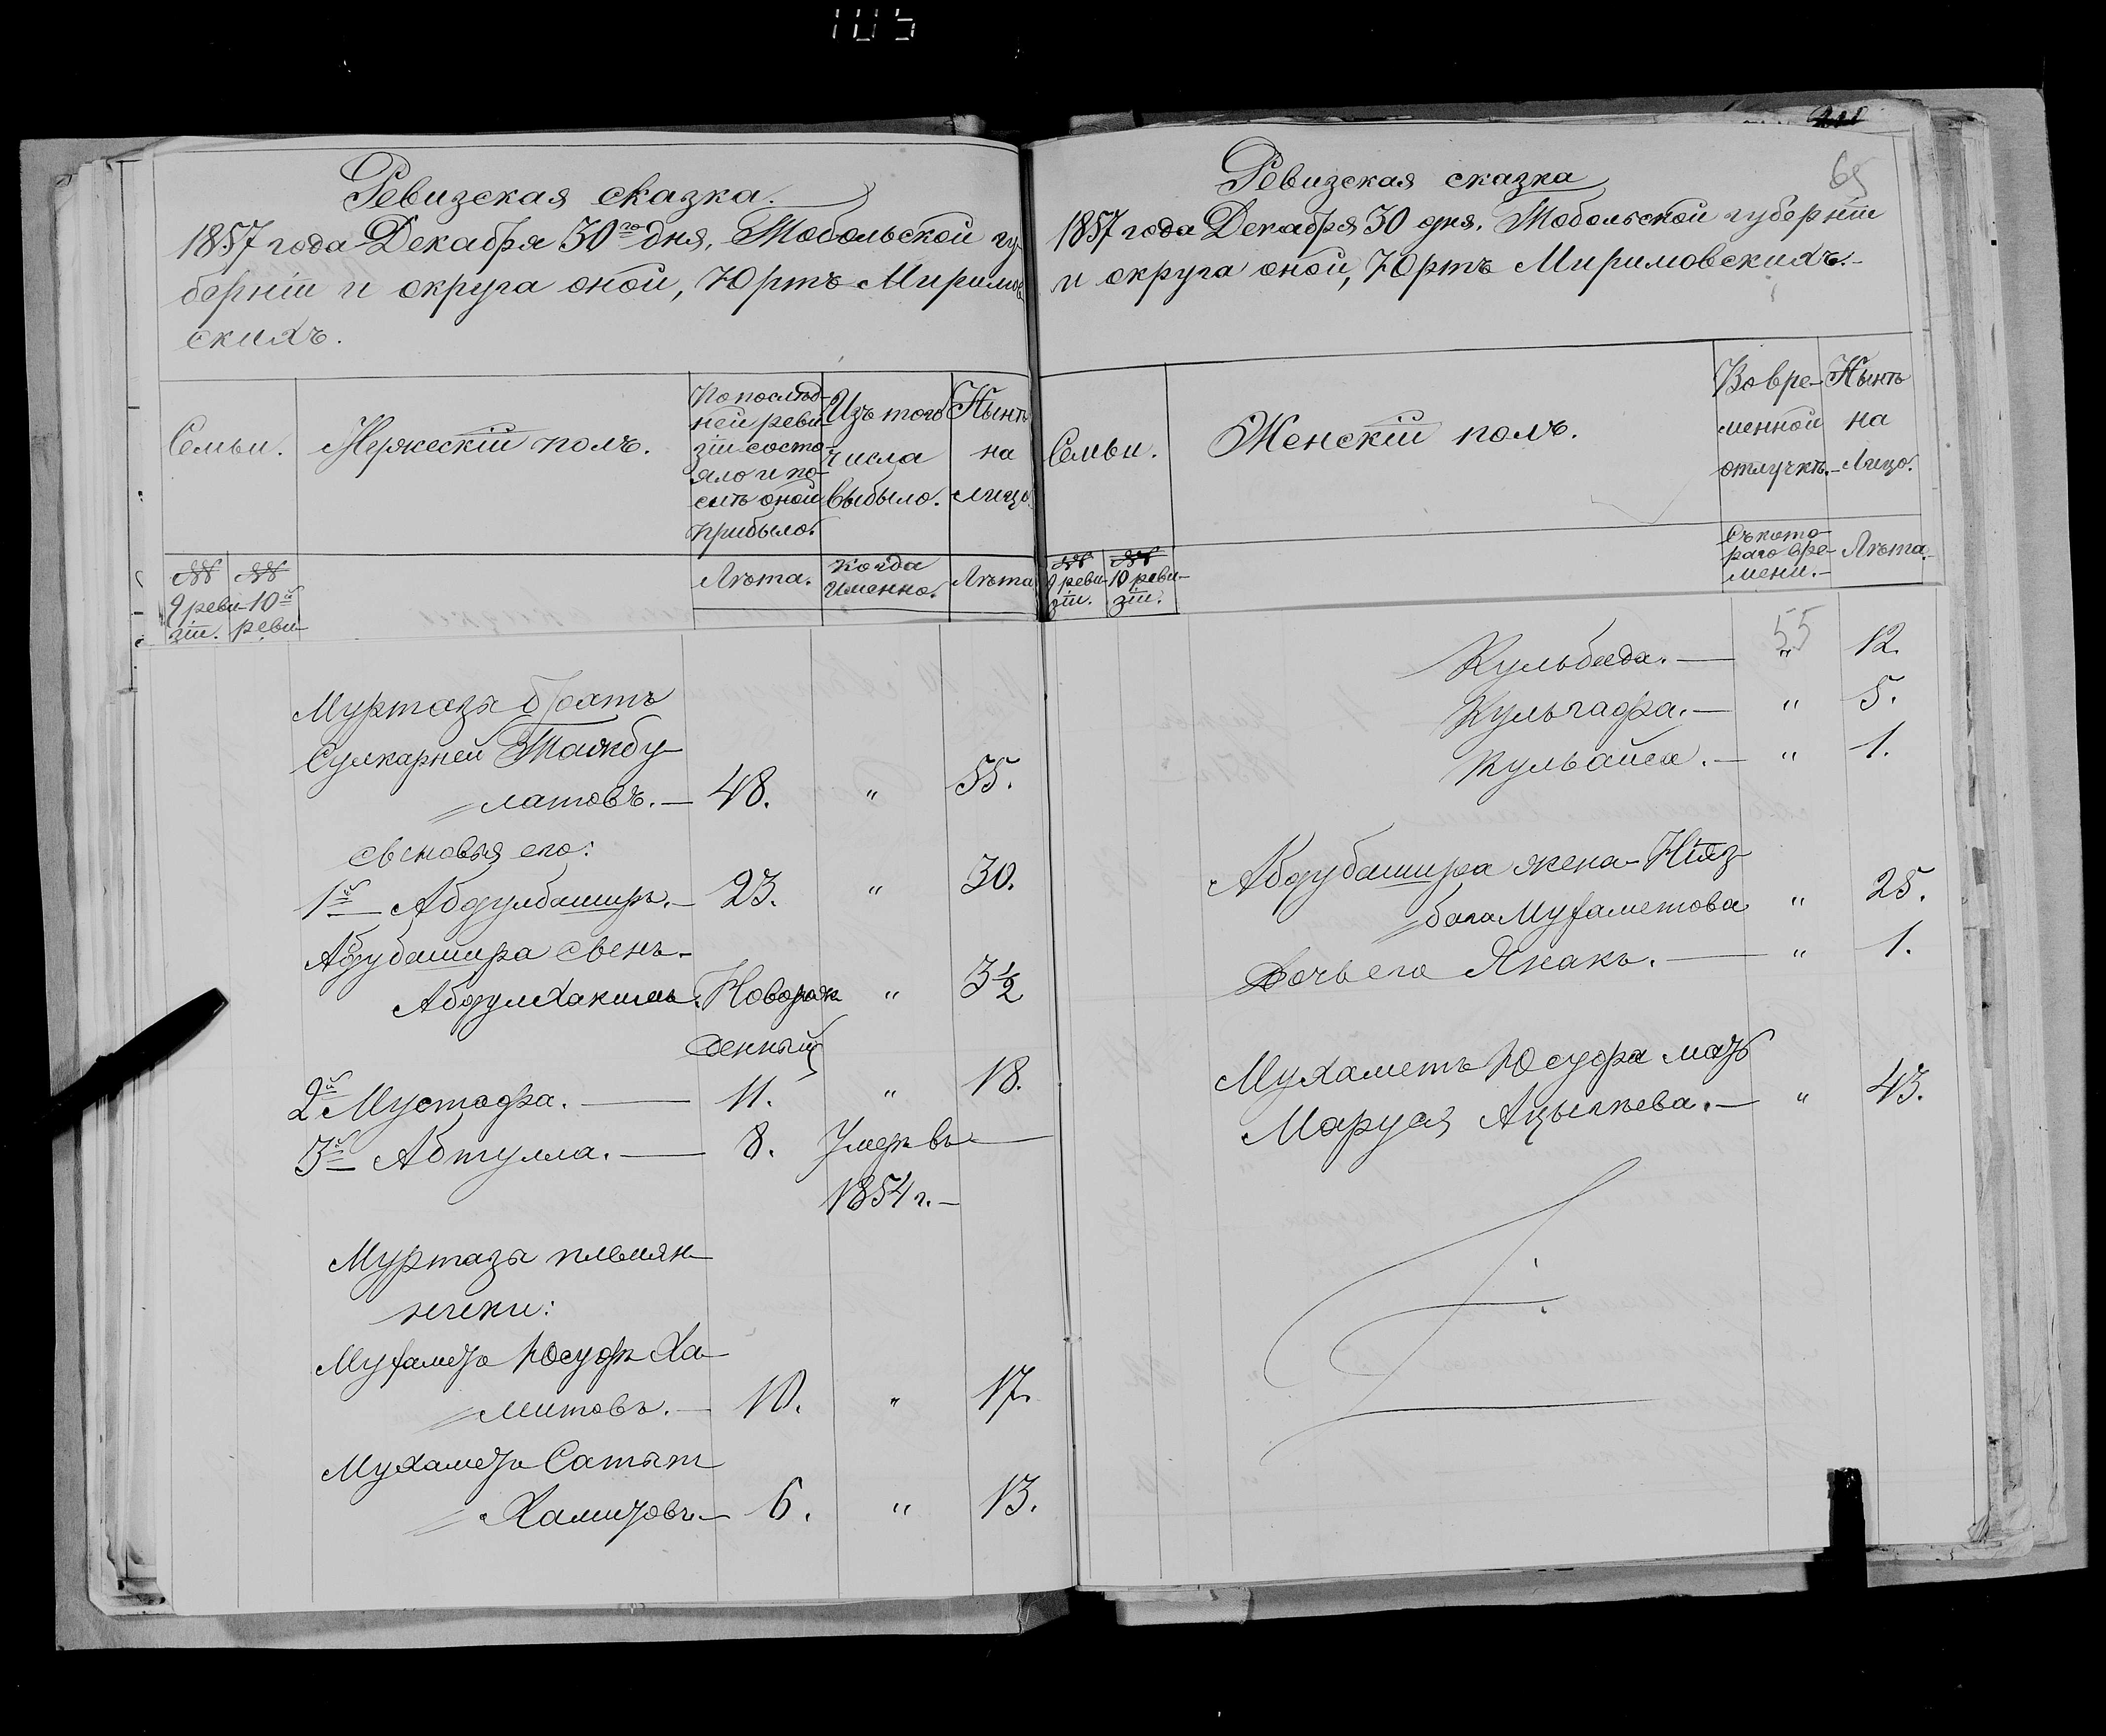 105
Ревизская сказка.
1857 года Декабря 30го дня, Тобольской гу
берніи и округа оной, Юртъ Миримов
скихъ.
Семьи.
Мужескій полъ.
По послѣд-
ней реви-
зіи состо
яло и по-
слѣ оной
прибыло.
Изъ того
числа
выбыло.
Нынѣ
на
лицо.
№№
9 реви-
зіи.
№№
10й
реви-
Лѣта.
Когда
именно.
Лѣта
Муртазы братъ
Сулкарней Таижбу
латовъ. — 48. " 55.
сыновья его:
1й Абдулбаширъ. — 23. " 30.
Абдубашира сынъ —
Абдулхакимъ. Новорож " 3½
денный
2й Мустафа. — 11. " 18.
3й Абтулла. — 8. Умеръ въ —
1854 г. —
Муртазы племян
ники:
Мухаметъ Юсуфъ Ха-
митовъ. — 10. " 17.
Мухаметъ Сатыт
Хамитовъ. — 6. " 13.
Ревизская сказка
65
1857 года Декабря 30 дня. Тобольской губерніи
и округа оной, Юртъ Миримовскихъ. —
Семьи.
Женскій полъ.
Во вре-
менной
отлучкѣ. —
Нынѣ
на
Лицо.
№№
9 реви-
зіи.
№№
10 реви-
зіи.
Съ кото-
раго вре-
мени. —
Лѣта.
55
Кульбада. — " 12.
Кульчафра. — " 5.
Кульайса. — " 1.
Абдубашира жена Нiяз
бага Мухаметова " 25.
Дочь его Янакъ. — " 1.
Мухаметъ Юсуфа мать
Маруея Ацылкева. — " 43.